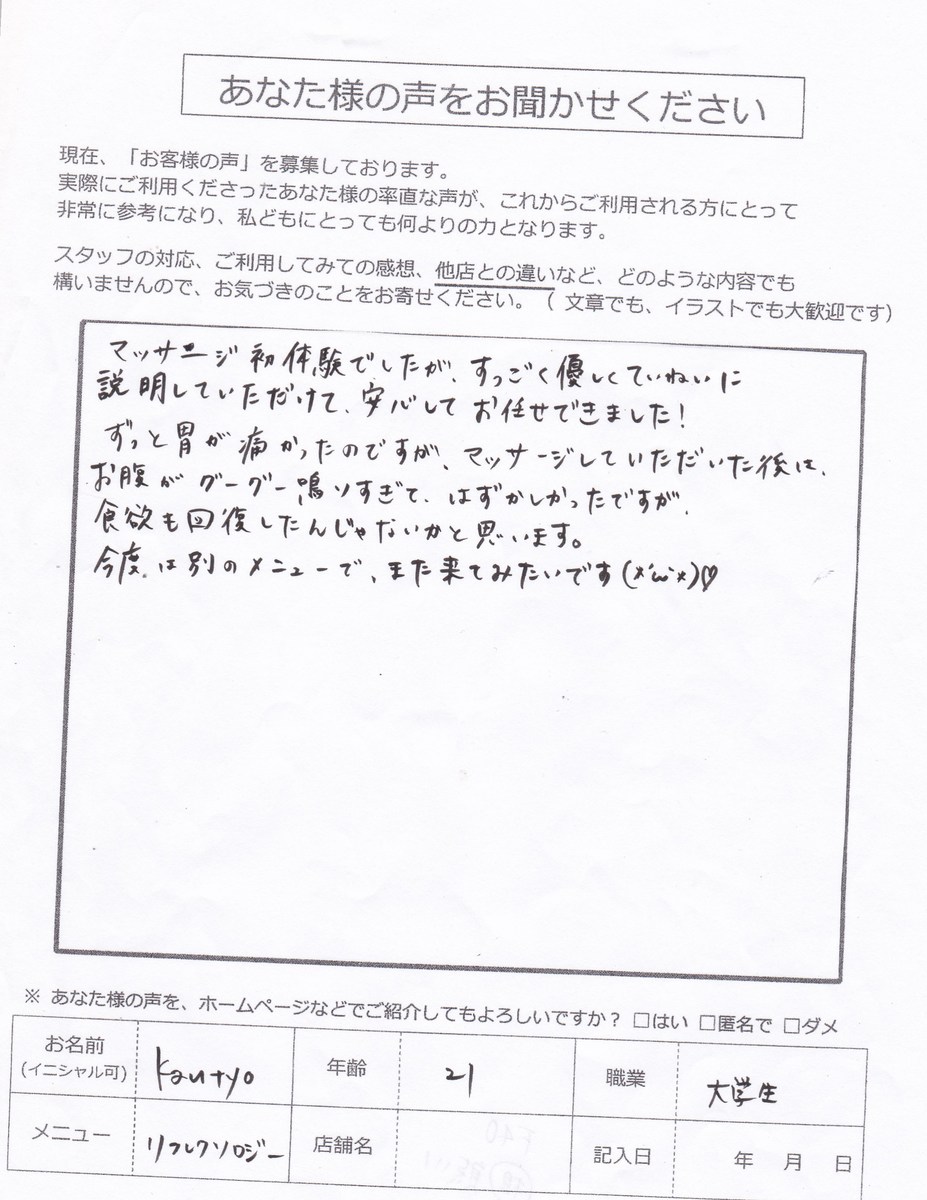 あなた様の声をお聞かせください
現在、「お客様の声」を募集しております。
実際にご利用くださったあなた様の率直な声が、これからご利用される方にとって
非常に参考になり、私どもにとっても何よりの力となります。
スタッフの対応、ご利用してみての感想、他店との違いなど、どのような内容でも
構いませんので、お気づきのことをお寄せください。（ 文章でも、イラストでも大歓迎です）
マッサージ初体験でしたが、すっごく優しくていねいに
説明していただけて、安心してお任せできました！
ずっと胃が痛かったのですが、マッサージしていただいた後は、
お腹がグーグー鳴りすぎて、はずかしかったですが、
食欲も回復したんじゃないかと思います。
今度は別のメニューで、また来てみたいです(*´ω`*)♡
※ あなた様の声を、ホームページなどでご紹介してもよろしいですか？ □はい □匿名で □ダメ
お名前 Kautyo 年齢 21 職業 大学生
(イニシャル可)
メニュー リフレクソロジー 店舗名 記入日 年 月 日